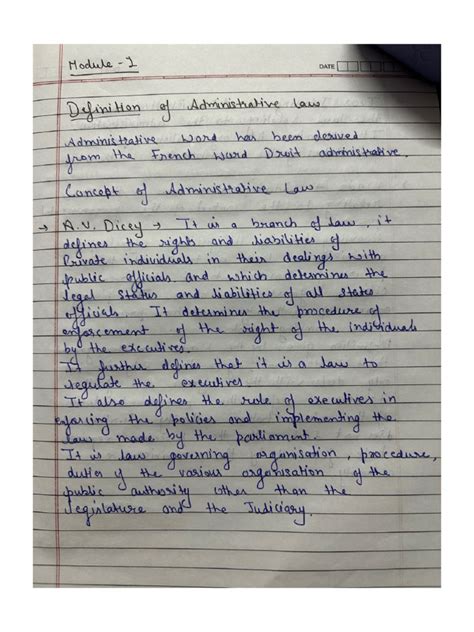 Module - 1
DATE
Definition of Administrative Law
Administrative word has been derived
from the French word Druit administrative.
Concept of Administrative Law
→ A.V. Dicey → It is a branch of law, it
defines the rights and liabilities of
Private individuals in their dealings with
public officials and which determines the
legal status and liabilities of all states
officials. It determines the procedure of
enforcement of the right of the individuals
by the executives.
It further defines that it is a law to
regulate the executives
It also defines the role of executives in
enforcing the policies and implementing the
law made by the parliament.
It is law governing organisation, procedure,
duties of the various organisation of the
public authority other than the
legislature and the Judiciary.